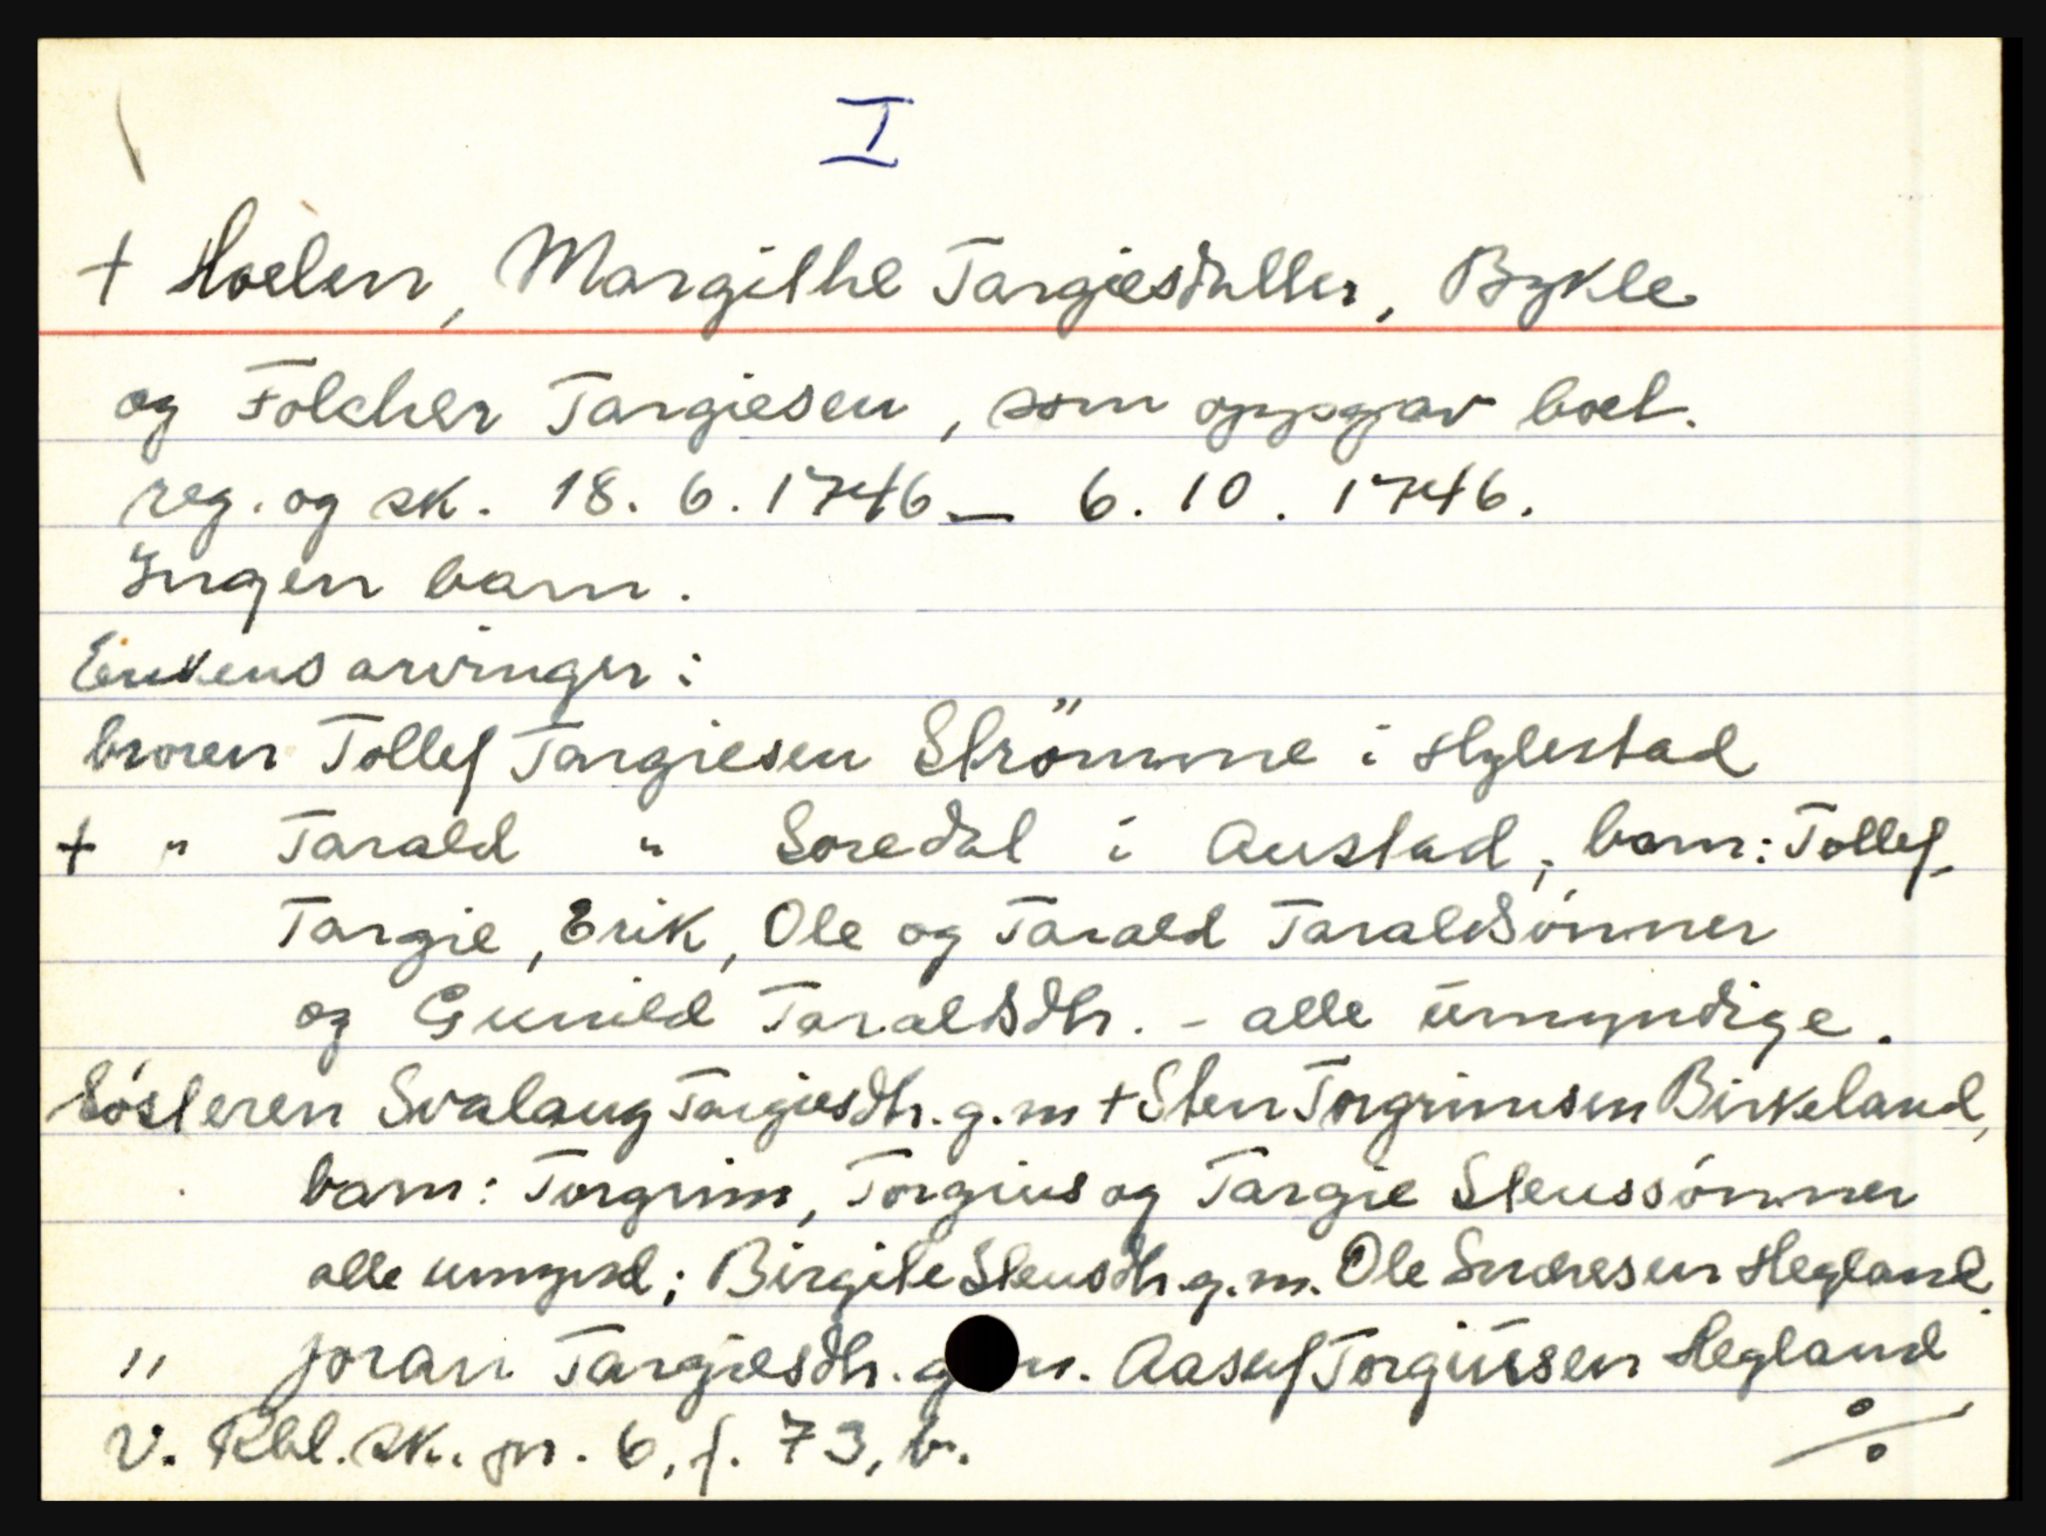 I
+ Hoelen, Margithe Targiesdatter, Bykle
og Folcher Targiesen, som oppgav boet.
reg. og sk. 18. 6. 1746 — 6. 10. 1746.
Ingen barn.
Enkens arvinger:
broren Tollef Targiesen Strömme i Hylestad
+ " Tarald " Soredal i Austad, barn: Tollef,
Targie, Erik, Ole og Tarald Taraldsónner
og Gunild Taraldsdtr. - alle umyndige.
Sósteren Svalaug Targiesdtr. g.m + Sten Torgrimsen Birkeland,
barn: Torgrim, Torgius og Targie Stenssónner
alle umynd; Birgite Stensdtr. g.m. Ole Hegland
" Joran Targiesdtr. g.m. Aasuf Torgiussen Hegland
V. Rbl. sk. pr. 6, f. 73, b.